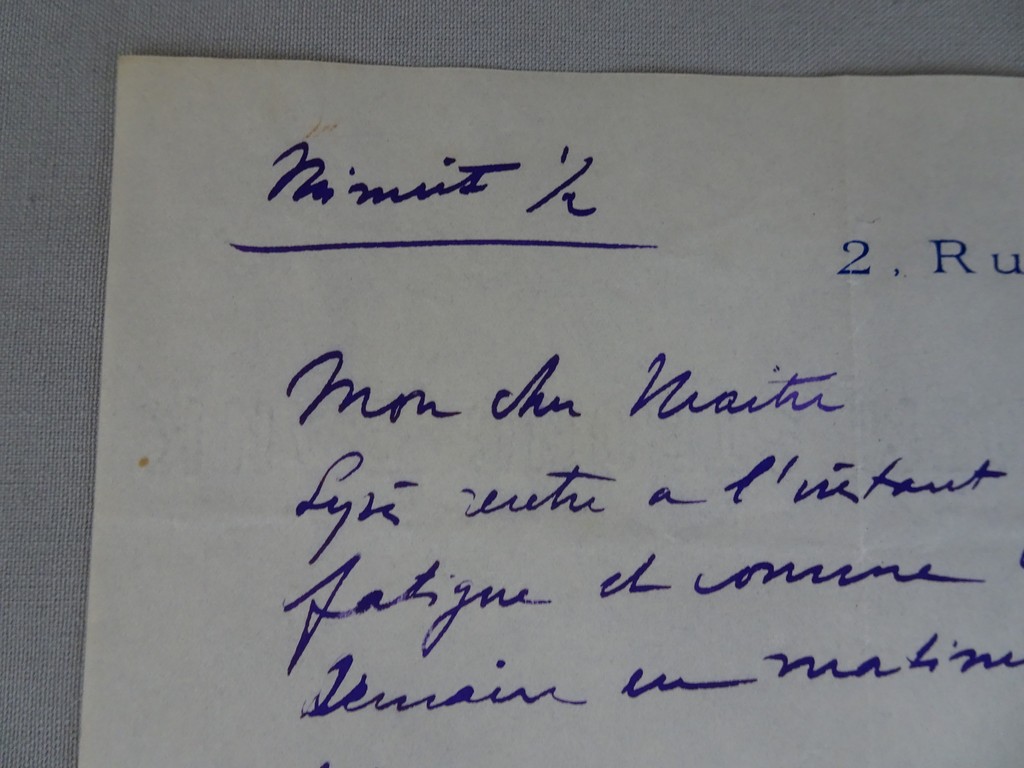 Minuit 1/2
2, Ru
Mon cher Maitre
rentre a l'instant
fatigue et comme
Demain en matine